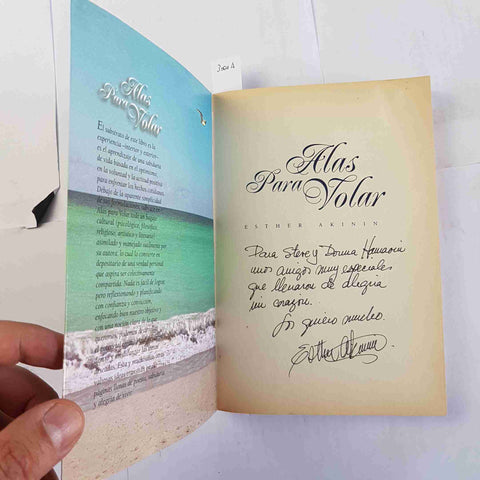 Alas
Para Volar
El substrato de este libro es la
experiencia -interior y exterior-
es el aprendizaje de una sabiduría
de vida basada en el optimismo,
en la voluntad y la actitud positiva
para enfrentar los hechos cotidianos.
Debajo de la aparente simplicidad
de sus formulaciones, subyace en
Alas para Volar todo un bagaje
cultural (psicológico, filosófico,
religioso, artístico y literario)
asimilado y manejado sutilmente por
su autora, lo cual la convierte en
depositaria de una verdad personal
que aspira ser colectivamente
compartida. Nada es fácil de lograr,
pero reflexionando y planificando
con confianza y convicción,
enfocando bien nuestro objetivo y
con una noción clara de lo que
páginas llenas de poesía, sabiduría
y alegría de vivir.
Alas
Para Volar
ESTHER AKININ
Para Steve y Donna
unos amigos muy especiales
que llenaron de alegria
mi corazon.
Los quiero mucho.
Esther Akinin